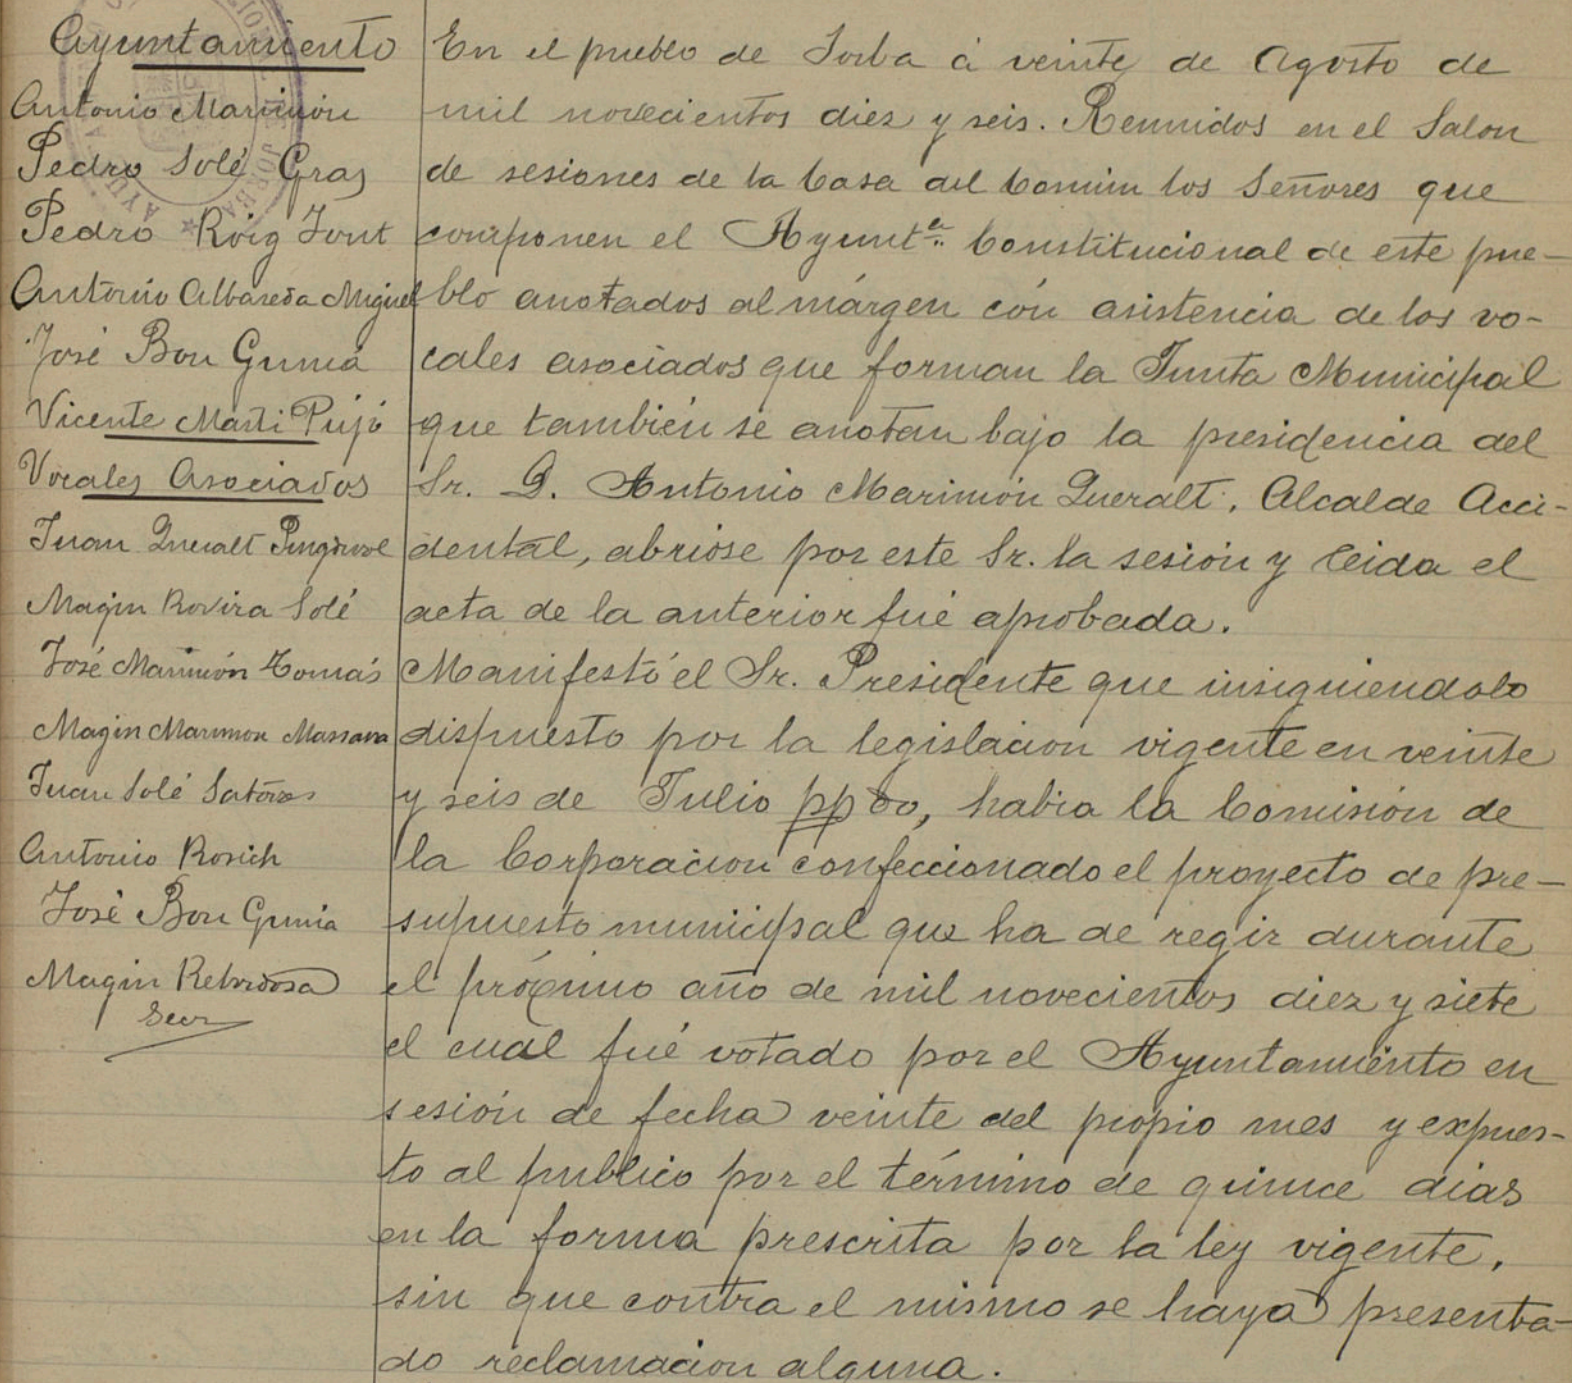 Ayuntamiento
Antonio Marimón
Pedro Solé Gras
Pedro Roig Font
Antonio Albareda Miguel
José Bou Gumá
Vicente Marti Pujó
Vocales Asociados
Juan Queralt
Magin Rovira Solé
José Marimón Tomás
Magin Marimon Massana
Juan Solé
Antonio Rosich
José Bou Gumá
Magin Rebordosa
Secr
En el pueblo de Jorba á veinte de Agosto de
mil novecientos diez y seis. Reunidos en el Salon
de sesiones de la Casa del Comun los Señores que
componen el Ayuntº Constitucional de este pue-
blo anotados al márgen cón asistencia de los vo-
cales asociados que forman la Junta Municipal
que también se anotan bajo la presidencia del
Sr. D. Antonio Marimón Queralt, Alcalde Acci-
dental, abrióse por este Sr. la sesión y leida el
acta de la anterior fué aprobada.
Manifestó el Sr. Presidente que insiguiendolo
dispuesto por la legislacion vigente en veinte
y seis de Julio ppdo, habia la Comisión de
la Corporacion confeccionado el proyecto de pre-
supuesto municipal que ha de regir durante
el próximo año de mil novecientos diez y siete
el cual fué votado por el Ayuntamiento en
sesión de fecha veinte del propio mes y expues-
to al publico por el término de quince dias
en la forma prescrita por la ley vigente,
sin que contra el mismo se haya presenta-
do reclamacion alguna.